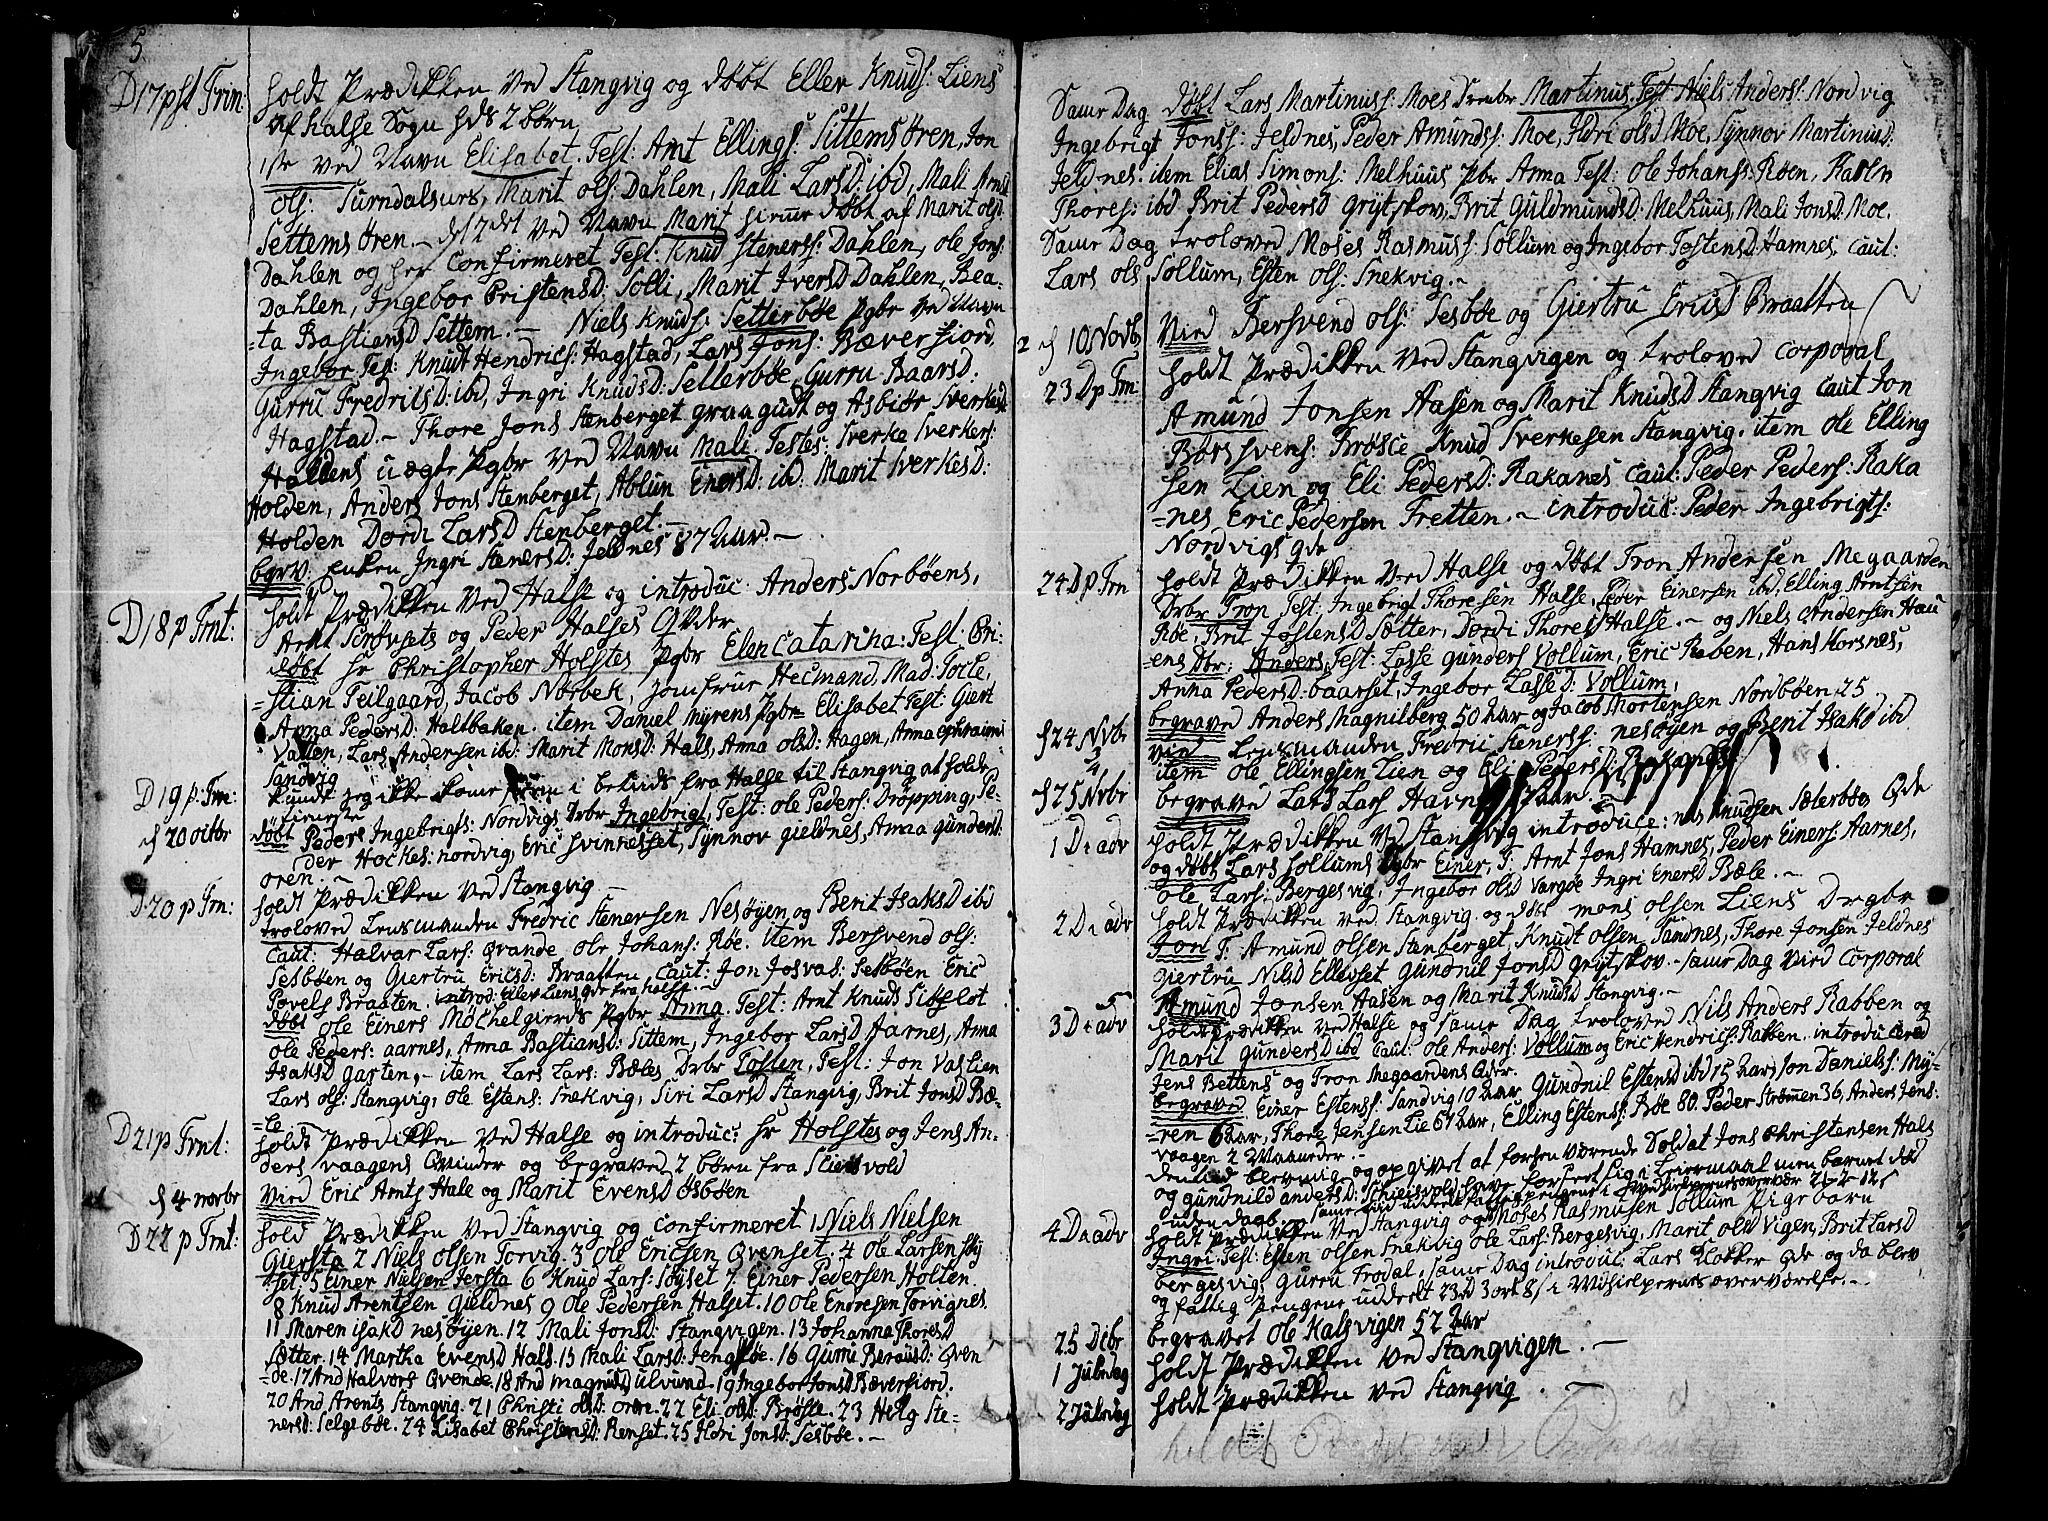 5.
D17pst Trin: holdt Prædikken Ved Stangvig og døbt Eller Knuds: Liens
af halse Sogn hds 2 børn
1ste ved Navn Elisabet. Test: Amt Ellings: Settemsøren, Jon
ols: Surndalsurs, Marit ols: Dahlen, Mali Larsd: ibd, Mali Arnsd
Settemsøren. – d 2det ved Navn Marit døbt af Marit olsd
Dahlen og her Confirmeret Test: Knud Steners: Dahlen, ole Jons:
Dahlen, Ingebor Cristensd: Solli, Marit Iversd Dahlen, Bea-
=ta Bastiansd Settem. – Niels Knuds: Setterbøe Pgbr ved Navn
Ingebor Tes: Knudt Hendrics: Hagstad, Lars Jons: Bæverfiord,
Gurru Fredrichsd: ibd, Ingri Knudsd: Setterbøe, Gurru Baarsd.
Hagstad. – Thore Jons Stenberget graagudt og Asbiør Sverkesd
Holdens uægte Pgbr ved Navn Mali. Testes: Sverke Sverkers:
Holden, Anders Jons Stenberget, Ablun Enersd: ibd: Marit Sverkesd:
Holden Dordi Larsd Stenberget. –
bgrv. Enken Ingri Stenersd: Jeldnes 87 Aar. –
D18 p Trnt: holdt Prædikken Ved Halse og introduc Anders Norbøens,
Arnt Strøvsets og Peder Halses Qvder
døbt hr Christopher Holstes Pgbr Elen Catarina: Test: Cri-
=stian Teilgaard, Jacob Norbek, Jomfrue Hecmand, Mad: Torle,
Anna Pedersd: Haltbaken. item Daniel Myrens Pgbr Elisabet Test: Giert
Vallen, Lars Andersen ibd: Marit Monsd: Hals, Anna olsd: Hagen, Anna Ephraims
Sandvig
D19 p: Trn: kunde jeg ikke kome fra Halse til Stangvig at holde
tieneste
d 20 octbr døbt Peders Ingebrigts: Nordvigs Drbr Ingebrigt, Test: ole Peders: Drøpping, Pe-
der Hockes: nordvig, Eric Svinnesset, Synnov gieldnes, Anna Gundersd:
oren. –
D20 p Trn: holdt Prædikken Ved Stangvig –
troloved Lensmanden Fredric Stenersen Nesøyen og Berit Isaksd ibd
Caut: Halvar Lars: Qvande ole Johans: Røe. item Bersvend ols:
Sesbøen og Giertru Ericsd: Braatten, Caut: Jon Josvas: Sesbøen Eric
Povels Braaten. introd: Eller Liens Qde fra halse. –
døbt ole Einers Møchelgierds Pgbr Anna. Test: Arnt Knuds Siøslot
ole Peders: aarnes, Anna Bastiansd: Sittem, Ingebor Larsd Aarnes, Anna
Isaksd garten. – item Lars Lars: Bæles Drbr Tosten, Test: Jon Vaslien
Lars ols: Stangvig, ole Estens: Snekvig, Siri Larsd Stangvig, Brit Jonsd Bæ-
le
D21 p Trnt: holdt Prædikken Ved Halse og introduc: hr Holstes og Jens An-
ders vaagens Qvinder og begraved 2 børn fra Slietsvold
d 4 novbr Vied Eric Amts Hale og Marit Evensd Øsbøen
D22 p Trnt: hold Prædikken Ved Stangvig og Confirmeret 1 Niels Nielsen
Giersta 2 Niels olsen Torvig. 3 ole Ericsen Qvenset. 4 ole Larsen Søy
set 5 Einer Nielsen Jersta 6 Knud Lars: Søyset 7 Einer Pedersen Holten
8 Knud Arentsen Gieldnes 9 ole Pedersen Halset. 10 ole Endresen Torvignes.
11 Maren isakd nesøyen. 12 Mali Jonsd: Stangvigen. 13 Johanna Thoresd
Sætter. 14 Martha Evensd Hals. 15 Mali Larsd: 16 Gurru Qven
=de. 17 And Halvors Qvende. 18 And Magnuds ulvund. 19 Ingebor Jonsd Bæverfiord.
20 And Arents Stangvig. 21 Christi olsd oren. 22 Eli olsd Brøske. 23 Helg Ste-
nersd: Selgebøe. 24 Lisabet Christensd: Renset. 25 Ildri Jonsd: Sesbøe. –
Same Dag døbt Lars Martinus: Moes Drenbr Martinus. Test Niels Anders: Nordvig
Ingebrigt Jons: Jeldnes, Peder Amunds: Moe, Ildri olsd Moe, Synnov Martinusd:
Jeldnes. item Elias Simons: Melhuus Pbr Anna Test: Ole Johans: Røen, Karln
Thores: ibd Brit Pedersd Grytskov, Brit Guldmundsd: Melhuus, Mali Jonsd: Moe.
Same Dag troloved Moses Rasmus: Sollum og Ingebor Tostensd: Hamnes, Caut:
Lars ols Sollum, Esten ols: Snekvig. –
d 10 Novb Vied Bersvend ols: Sesbøe og Giertru Ericsd Braatten
23 D p Trn: holdt Prædikken Ved Stangvigen og troloved Corporal
Amund Jonsen Aasen og Marit Knudsd Stangvig Caut Jon
Børsvens: Brøske Knud Sverkesen Stangvig. item ole Elling
sen Lien og Eli Pedersd: Rakanes Caut: Peder Peders: Raka
=nes, Eric Pedersen Tretten. – introduc: Peder Ingebrigts:
Nordvigs Qde
24 D p Trn holdt Prædikken Ved Halse og døbt Tron Andersen Megaarden
Drbr Tron Test: Ingebrigt Thoresen Halse, Peder Einersen ibd, Elling Arntsen
Røe, Brit Jostensd Sætter, Dordi Thoresd Halse. – og Niels Andersen Hau
=ens Dbr: Anders, Test: Lasse Gunders Vollum, Eric Raben, Hans Korsnes,
Anna Pedersd: baarset, Ingebor Lassed: Vollum,
begraved Anders Magnilberg 50 Aar og Jacob Mortensen Nordbøen 25
d 24 Nvbr Vied Lensmanden Fredric Steners: nesøyen og Berit Isaksd ibd
item ole Ellingsen Lien og Eli Pedersd: Rakanes
d 25 Nvbr begraved Lars Lars Aar. –
1 D i adv holdt Prædikken Ved Stangvig introduce: Knudsen Sæterbøe Qde
og døbt Lars Sollums Pgbr Einer, T: Arnt Jons Hamnes, Peder Einers: Aarnes,
ole Lars: Bergesvig, Ingebor olsd Vargøe Ingri Enersd Bæle. –
2 D i adv holdt Prædikken ved Stangvig og døbt mons olsen Liens Drgbr
Jon T: Amund olsen Stenberget, Knudt olsen Sandnes, Thore Jonsen Jeldnes
Giertru Nilsd Ellevset Gundnil Jonsd Grytskov. – Same Dag Vied Corporal
Amund Jonsen Aasen og Marit Knudsd Stangvig. –
3 D i adv holdt Prædikken Ved Halse og Same Dag troloved Nils Anders Rabben og
Marit Gundersd ibd Caut: ole Anders: Vollum og Eric Hendrics: Rabben. introducered
Jens Bettens og Tron Megaardens Qder.
begraved Einer Estens: Sandvig 10 Aar Gundnil Estensd ibd 15 Aar, Jon Daniels: My-
ren 6 Aar, Thore Jensen Lie 67 Aar, Elling Estens: Røe 80. Peder Strømen 36, Anders Jens:
vaagen 2 Maaneder. –
Jons Christensen Hals
og gundnild andersd: Leiermaal men barnet død
4 D i adv holdt Prædikken Ved Stangvig og Moses Rasmusen Sollum Pigebarn
Ingri Test: Esten olsen Snekvig ole Lars: Bergesvig, Marit olsd Vigen, Brit Larsd
bergesvig, Gurru Trodal, Same Dag introduc: Lars Qde og da blev
og fattig Pengene uddeelt 23 rd 3 ort 8 s i Medhielpernes overværelse. –
25 Decbr begravet ole Kalsvigen 52 Aar
1 Juledag holdt Prædikken Ved Stangvigen. –
2 Juledag holdt Prædikken Ved Stangvig. –